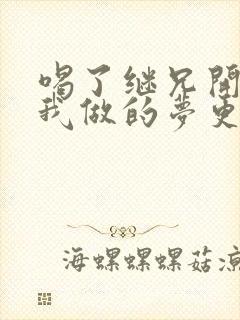 喝了继兄開
我做的夢更
海螺螺螺菇涼